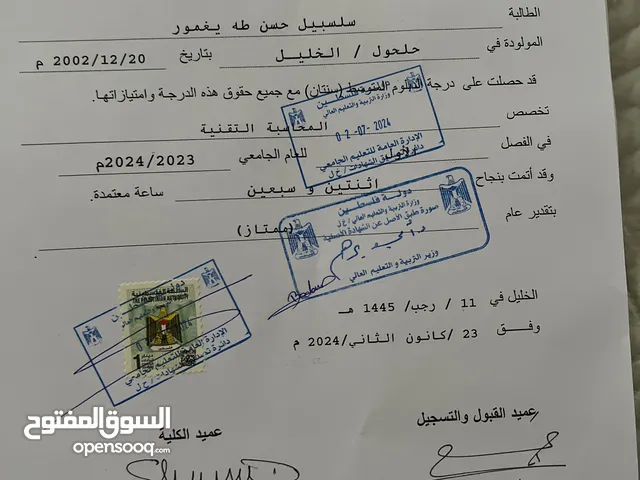 الطالبة سلسبيل حسن طه يغمور
المولودة في حلحول / الخليل بتاريخ 2002/12/20 م
قد حصلت على درجة الدبلوم المتوسط (سنتان) مع جميع حقوق هذه الدرجة وامتيازاتها.
تخصص المحاسبة التقنية
في الفصل الأول للعام الجامعي 2024/2023م
وقد أتمت بنجاح اثنتين و سبعين ساعة معتمدة.
بتقدير عام (ممتاز)
دولة فلسطين
وزارة التربية والتعليم العالي
02-07-2024
الإدارة العامة للتعليم الجامعي
دائرة تصديق الشهادات / خ ل
دولة فلسطين
وزارة التربية والتعليم العالي / خ ل
صورة طبق الأصل عن الشهادة الأصلية
وزير التربية والتعليم العالي
الخليل في 11 / رجب/ 1445 هـ
وفق 23 /كانون الثاني/2024 م
السلطة الفلسطينية
THE PALESTINIAN AUTHORITY
1
الإدارة العامة للتعليم الجامعي
دائرة تصديق الشهادات / خ ل
عميد القبول والتسجيل
عميد الكلية
السوق المفتوح
opensooq.com